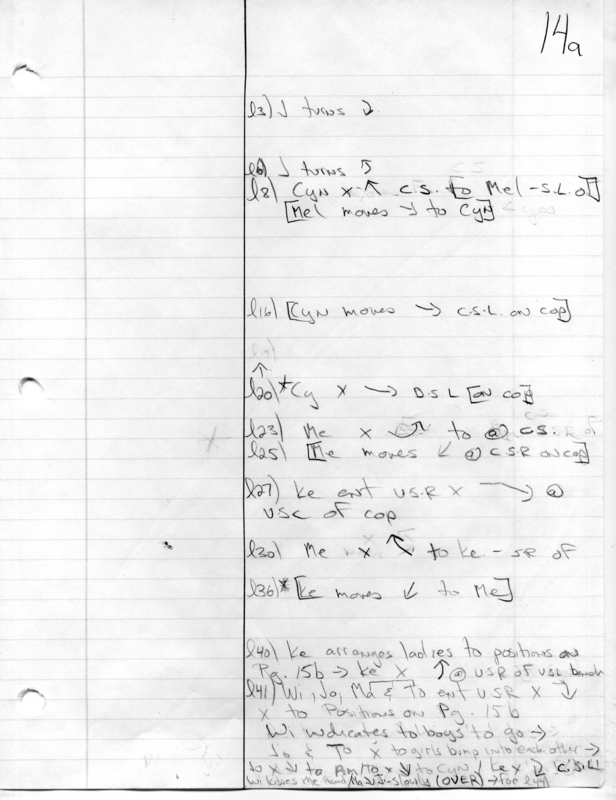 14a
l3) J turns ↓
l6) J turns ↑
l8) Cyn X ↑ C.S. [to Mel - S.L. of]
[Mel moves ↓ to Cyn]
l16) [Cyn moves → C.S.L. on cop]
↑
l20)* Cy X → D.S.L [on cop]
l23) Me X to @ C.S.
l25) [Me moves ↙ @ CSR on cop]
l27) Ke ent US.R X → @
USC of cop
l30) Me X ↖ to Ke - SR of
l36)* [Ke moves ↙ to Me]
l40) Ke arranges ladies to positions on
Pg. 15b → Ke X ↑ @ USR of USL bench
l41) Wi, Jo, Ma & To ent USR X ↓
X to Positions on Pg. 15b
Wi indicates to boys to go →
Jo & To X to girls bump into each other →
to X ↓ to Am/To X ↓ to Cyn / Ke X ↓ C.S.L
Wi kisses Me hand slowly (OVER) → for l44)